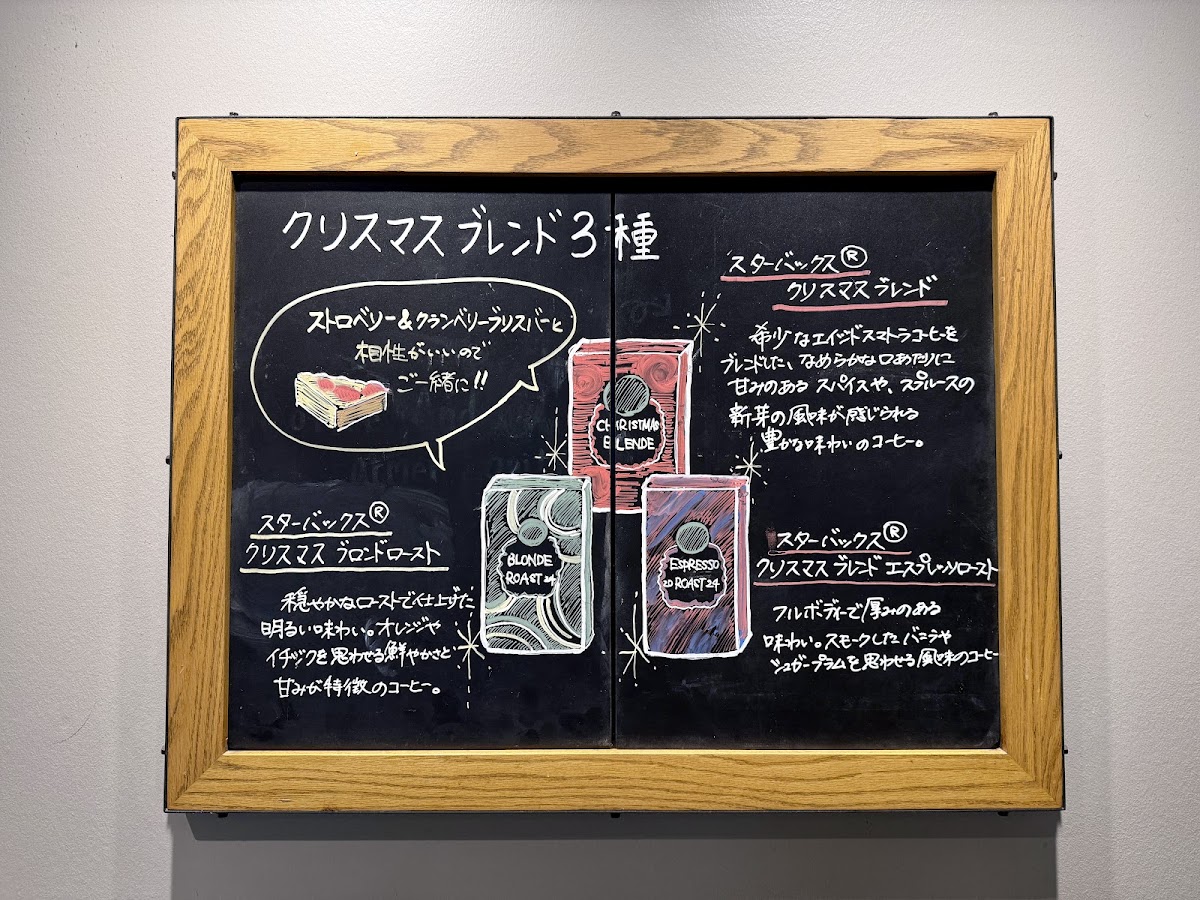 クリスマス ブレンド 3種
ストロベリー&クランベリーブリスバーと
相性がいいので
ご一緒に!!
スターバックス®
クリスマス ブレンド
希少なエイジッドスマトラコーヒーを
ブレンドした、なめらかな口あたりに
甘みのある スパイスや、スプルースの
新芽の風味が感じられる
豊かな味わいのコーヒー。
CHRISTMAS
BLENDE
スターバックス®
クリスマス ブロンドロースト
穏やかなローストで仕上げた
明るい味わい。オレンジや
イチジクを思わせる鮮やかさと
甘みが特徴のコーヒー。
BLONDE
ROAST 24
ESPRESSO
20 ROAST 24
スターバックス®
クリスマス ブレンド エスプレッソロースト
フルボディーで厚みのある
味わい。スモークしたバニラや
シュガープラムを思わせる風味のコーヒー